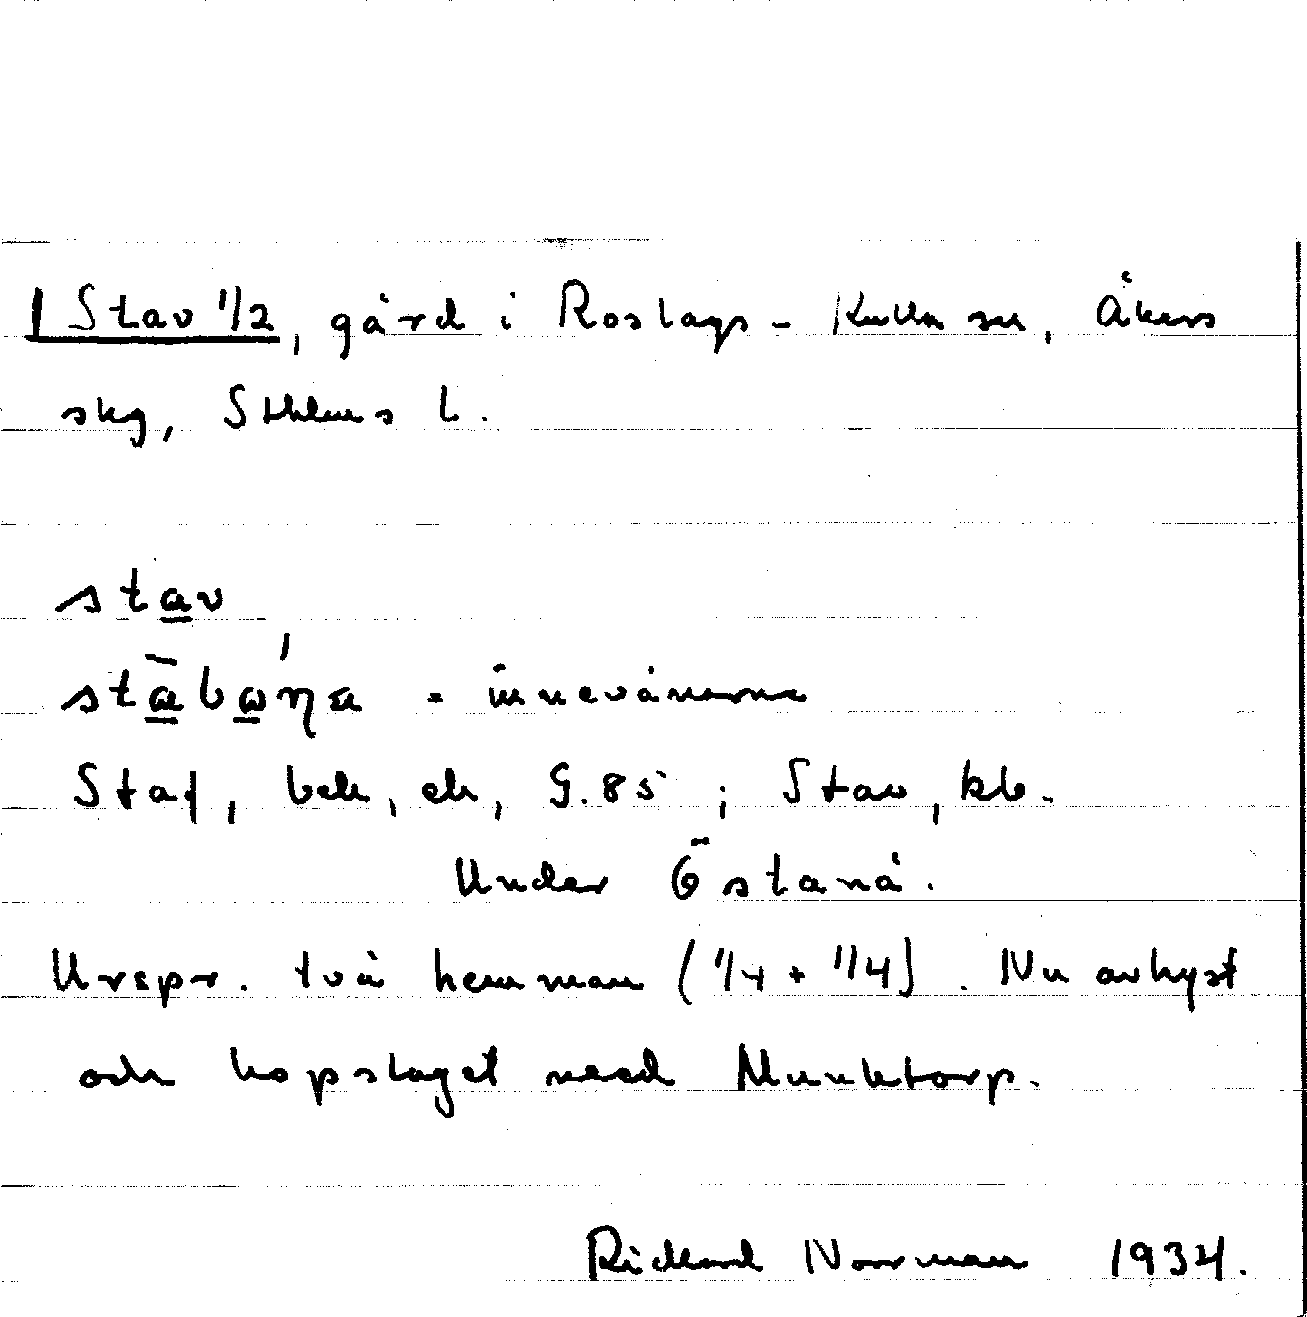 Stav 1/2, gård i Roslags-Kulla sn, Åkers
skg, Sthlms l.
stav
stābo'ŋa = innevånarna
Staf, bek, ek, G.85; Stav, kb.
Under Östanå.
Urspr. två hemman (1/4 + 1/4). Nu avhyst
och hopslaget med Munktorp.
Rickard Norrman 1934.